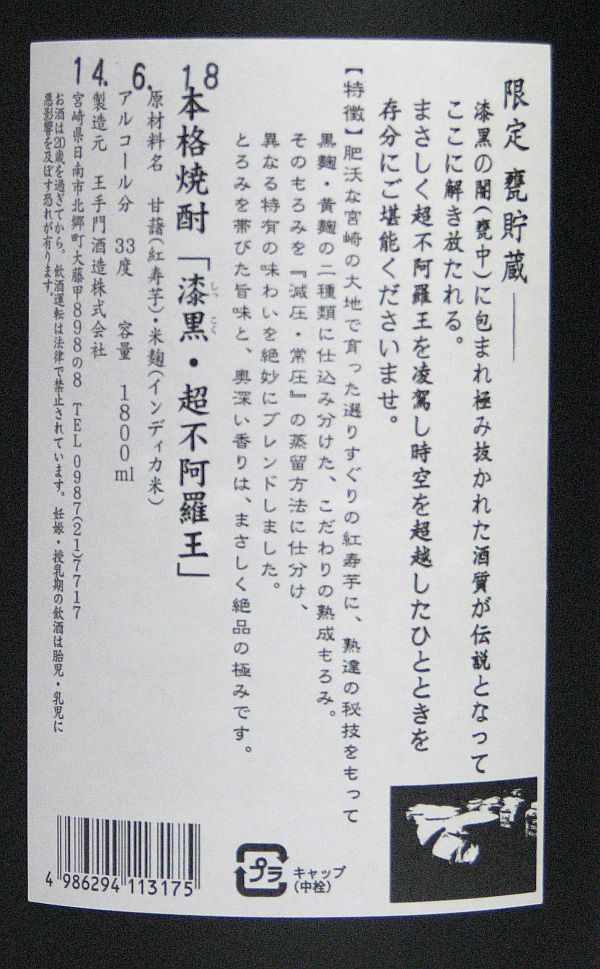 限定 甕貯蔵――
漆黒の闇(甕中)に包まれ極み抜かれた酒質が伝説となって
ここに解き放たれる。
まさしく超不阿羅王を凌駕し時空を超越したひとときを
存分にご堪能くださいませ。
【特徴】肥沃な宮崎の大地で育った選りすぐりの紅寿芋に、熟達の秘技をもって
黒麹・黄麹の二種類に仕込み分けた、こだわりの熟成もろみ。
そのもろみを『減圧・常圧』の蒸留方法に仕分け、
異なる特有の味わいを絶妙にブレンドしました。
とろみを帯びた旨味と、奥深い香りは、まさしく絶品の極みです。
18
本格焼酎「漆黒・超不阿羅王」
しっ こく
6.
原材料名 甘藷(紅寿芋)・米麹(インディカ米)
アルコール分 33度 容量 1800ml
14.
製造元 王手門酒造株式会社
宮崎県日南市北郷町大藤甲898の8 TEL 0987(21)7717
お酒は20歳を過ぎてから。飲酒運転は法律で禁止されています。妊娠・授乳期の飲酒は胎児・乳児に
悪影響を及ぼす恐れが有ります。
4 986294 113175
プラ
キャップ
(中栓)